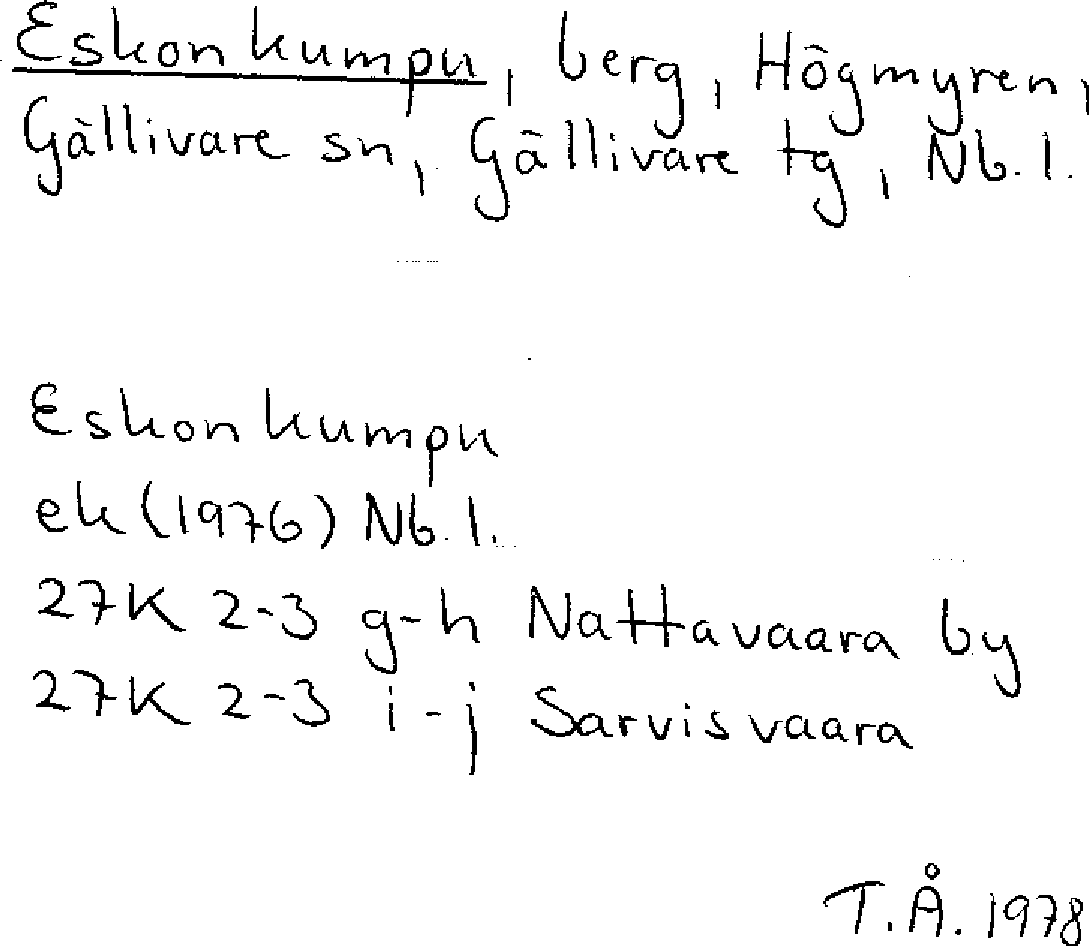 Eskonkumpu, berg, Högmyren,
Gällivare sn, Gällivare tg, Nb. l.
Eskonkumpu
ek (1976) Nb. l.
27K 2-3 g-h Nattavaara by
27K 2-3 i-j Sarvisvaara
T.Å. 1978